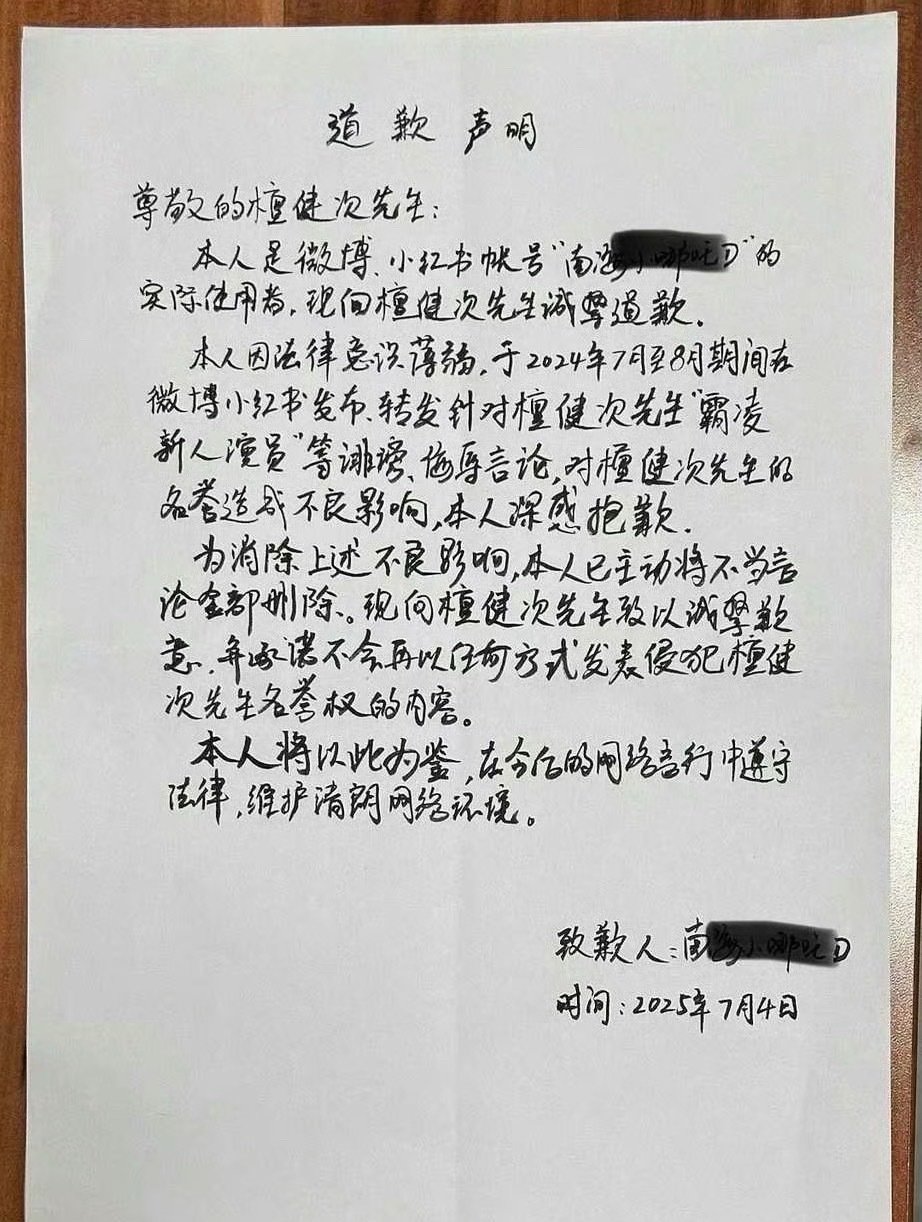 道歉声明
尊敬的檀健次先生：
本人是微博、小红书帐号“南的
实际使用者，现向檀健次先生诚挚道歉.
本人因法律意识薄弱，于2024年7月至8月期间在
微博小红书发布、转发针对檀健次先生“霸凌
新人演员”等诽谤、侮辱言论，对檀健次先生的
名誉造成不良影响，本人深感抱歉.
为消除上述不良影响，本人已主动将不当言
论全部删除、。现向檀健次先生致以诚挚歉
意，并承诺不会再以任何方式发表侵犯檀健
次先生名誉权的内容。
本人将以此为鉴，在今后的网络言行中遵守
法律，维护清朗网络环境。
致歉人：南
时间：2025年7月4日